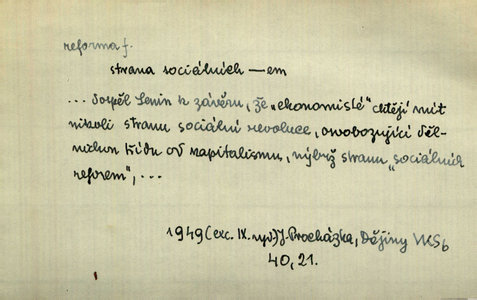 reforma f.
strana sociálních —em
... dospěl Lenin k závěru, že „ekonomisté“ chtějí mít
nikoli stranu sociální revoluce, osvobozující děl-
nickou třídu od kapitalismu, nýbrž stranu „sociálních
reforem“, ...
1949 (exc. IX. vyd.) J. Procházka, Dějiny VKSb
40, 21.